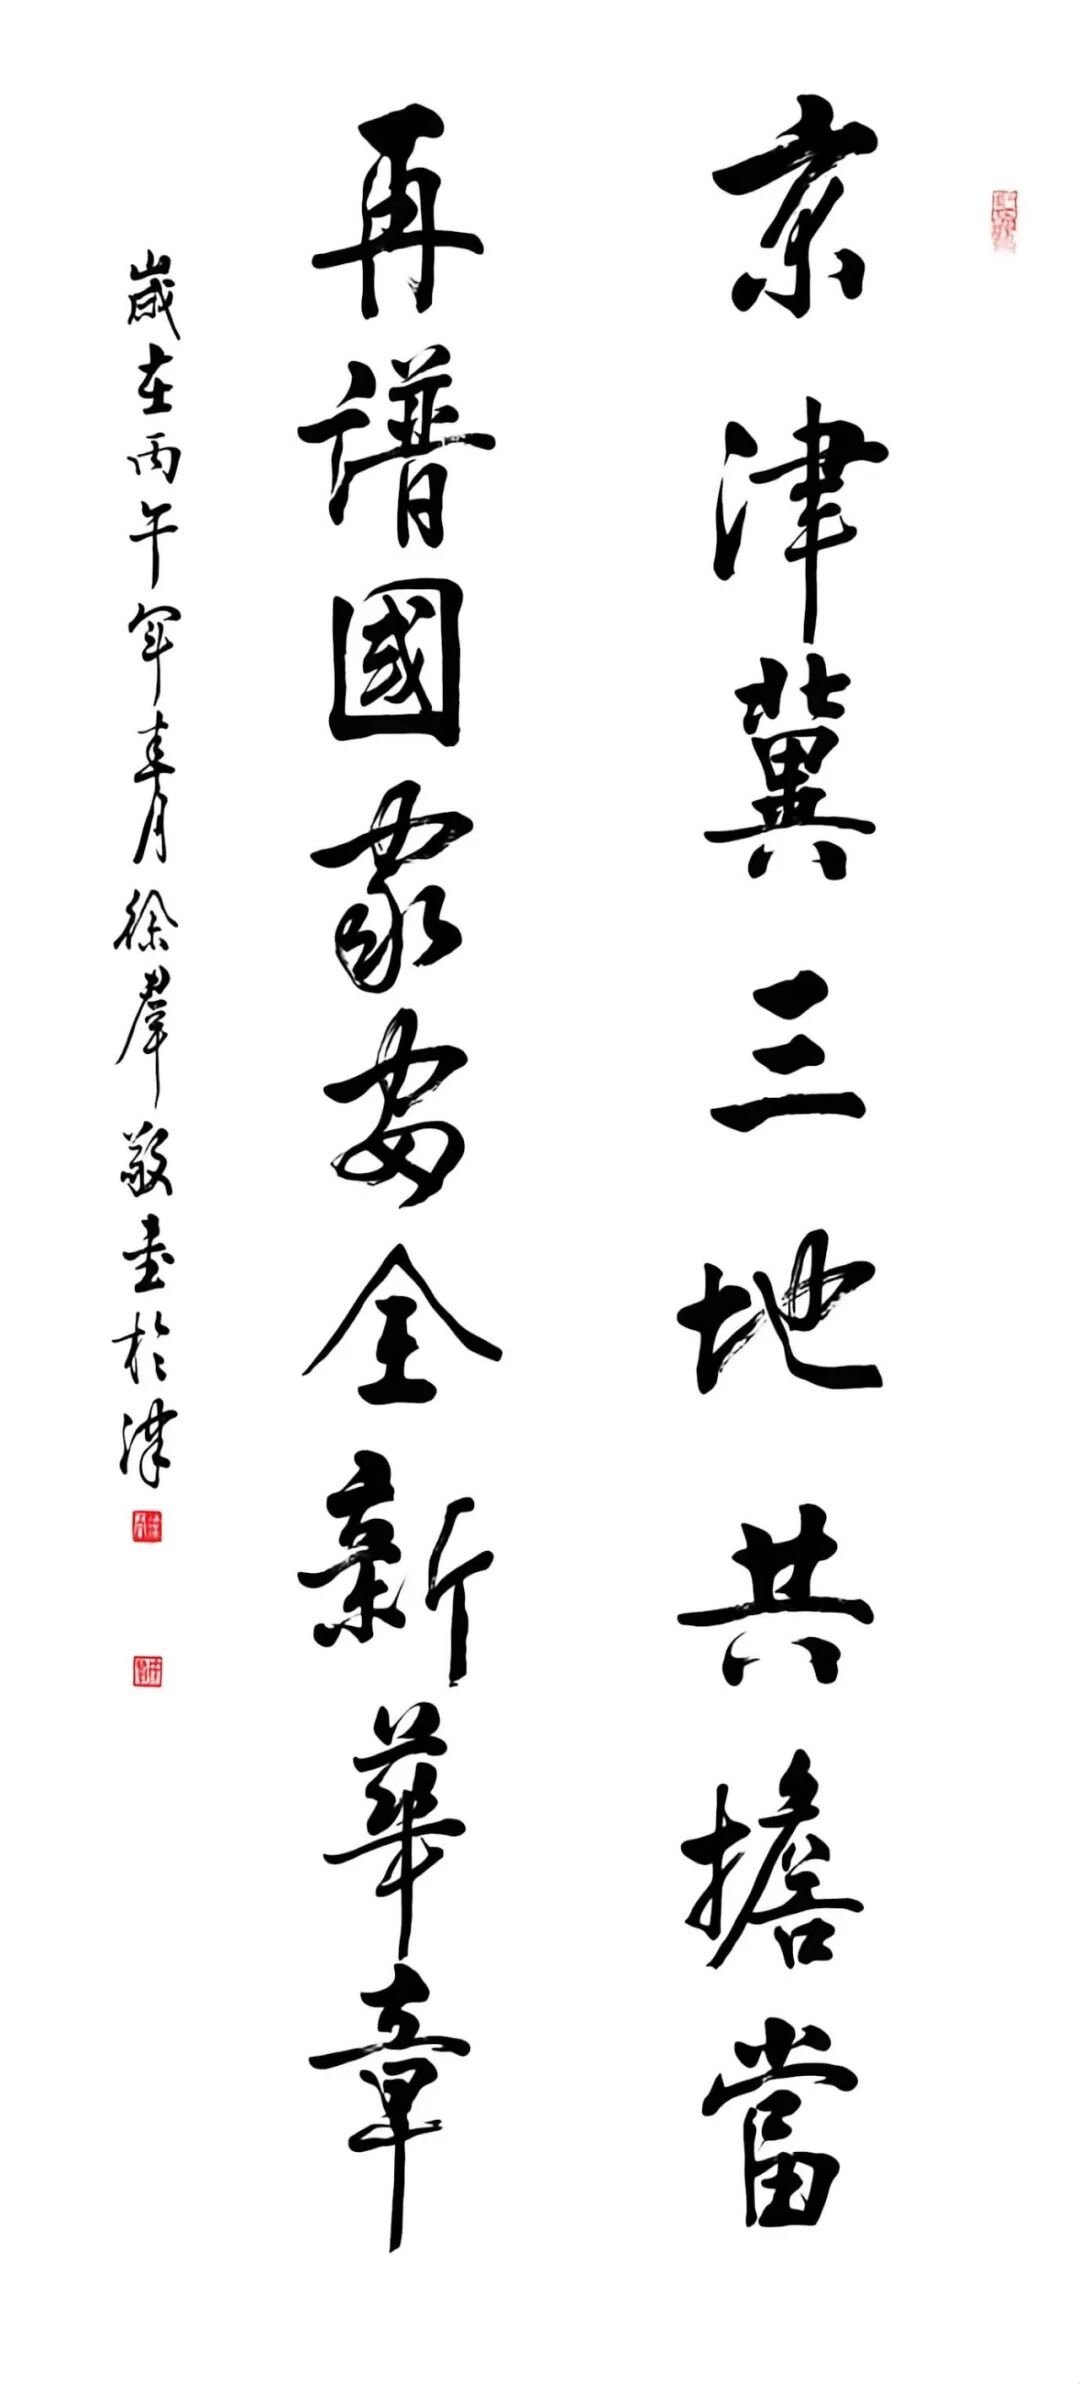 京津冀三地共擔當
再譜國家安全新華章
歲在丙午年春月徐群敬書於津